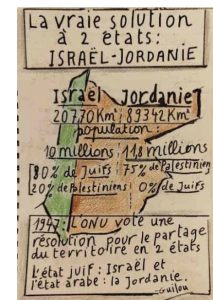 La vraie solution
à 2 états:
ISRAËL-JORDANIE
Israël Jordanie
20770 Km² 89342 Km²
population:
10 millions 11,8 millions
80% de Juifs 75% de Palestiniens
20% de Palestiniens 0% de Juifs
1947: L'ONU vote une
résolution pour le partage
du territoire en 2 états
L'état juif: Israël et
l'état arabe: la Jordanie.
-Guilou